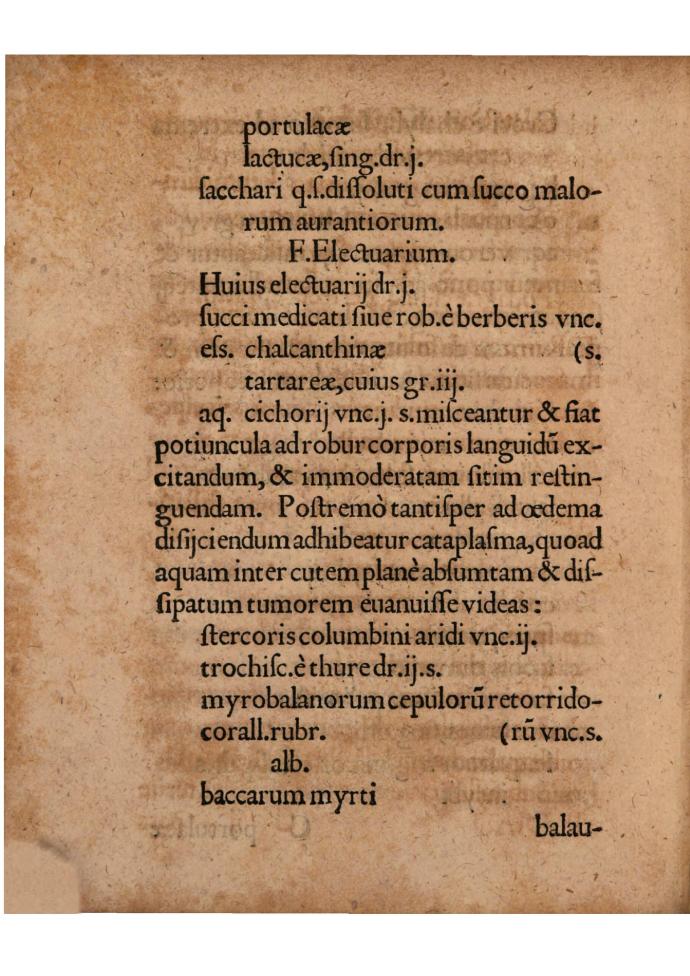 portulacæ
lactucæ,ſing.dr.j.
ſacchari q.ſ.diſſoluti cum ſucco malo-
rum aurantiorum.
F.Electuarium.
Huius electuarij dr.j.
ſucci medicati ſiue rob.è berberis vnc.
eſs. chalcanthinæ (s.
tartareæ,cuius gr.iij.
aq. cichorij vnc.j. s.miſceantur & fiat
potiuncula ad robur corporis languidū ex-
citandum, & immoderatam ſitim reſtin-
guendam. Poſtremò tantiſper ad œdema
diſijciendum adhibeatur cataplaſma,quoad
aquam inter cutem planè abſumtam & diſ-
ſipatum tumorem euanuiſſe videas:
ſtercoris columbini aridi vnc.ij.
trochiſc.è thure dr.ij.s.
myrobalanorum cepulorū retorrido-
corall.rubr. (rū vnc.s.
alb.
baccarum myrti
balau-